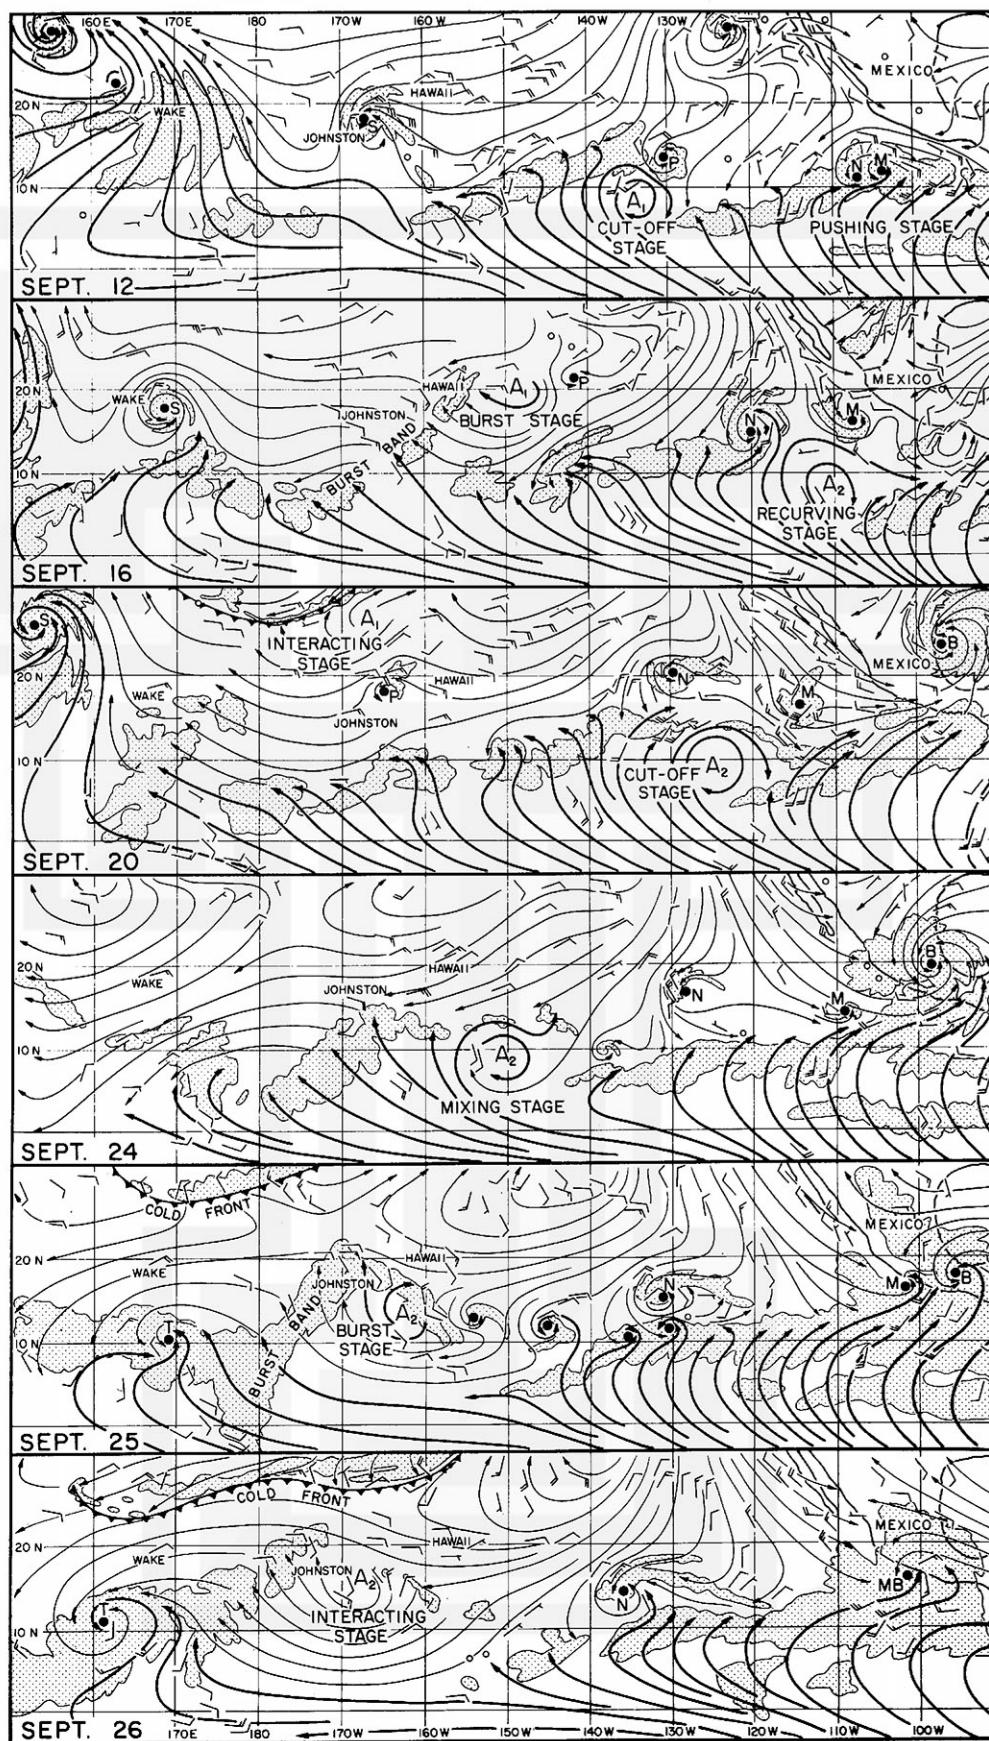 160E 170E 180 170W 160W 140W 130W
WAKE HAWAII MEXICO
20 N
JOHNSTON S
P N M
10 N
A₁
CUT-OFF STAGE
PUSHING STAGE
SEPT. 12
20 N WAKE S HAWAII A₁ P MEXICO
JOHNSTON BURST STAGE N M
BURST BAND
10 N
A₂
RECURVING STAGE
SEPT. 16
S A₁ B
INTERACTING STAGE
MEXICO
20 N WAKE P HAWAII N M
JOHNSTON
10 N
A₂
CUT-OFF STAGE
SEPT. 20
20 N WAKE HAWAII B
JOHNSTON N M
10 N
A₂
MIXING STAGE
SEPT. 24
COLD FRONT
MEXICO
20 N WAKE HAWAII
JOHNSTON N M B
BURST BAND
A₂
10 N T BURST STAGE
SEPT. 25
COLD FRONT
MEXICO
20 N WAKE HAWAII
JOHNSTON A₂ N MB
10 N T INTERACTING STAGE
SEPT. 26
170E 180 170W 160W 150W 140W 130W 120W 110W 100W